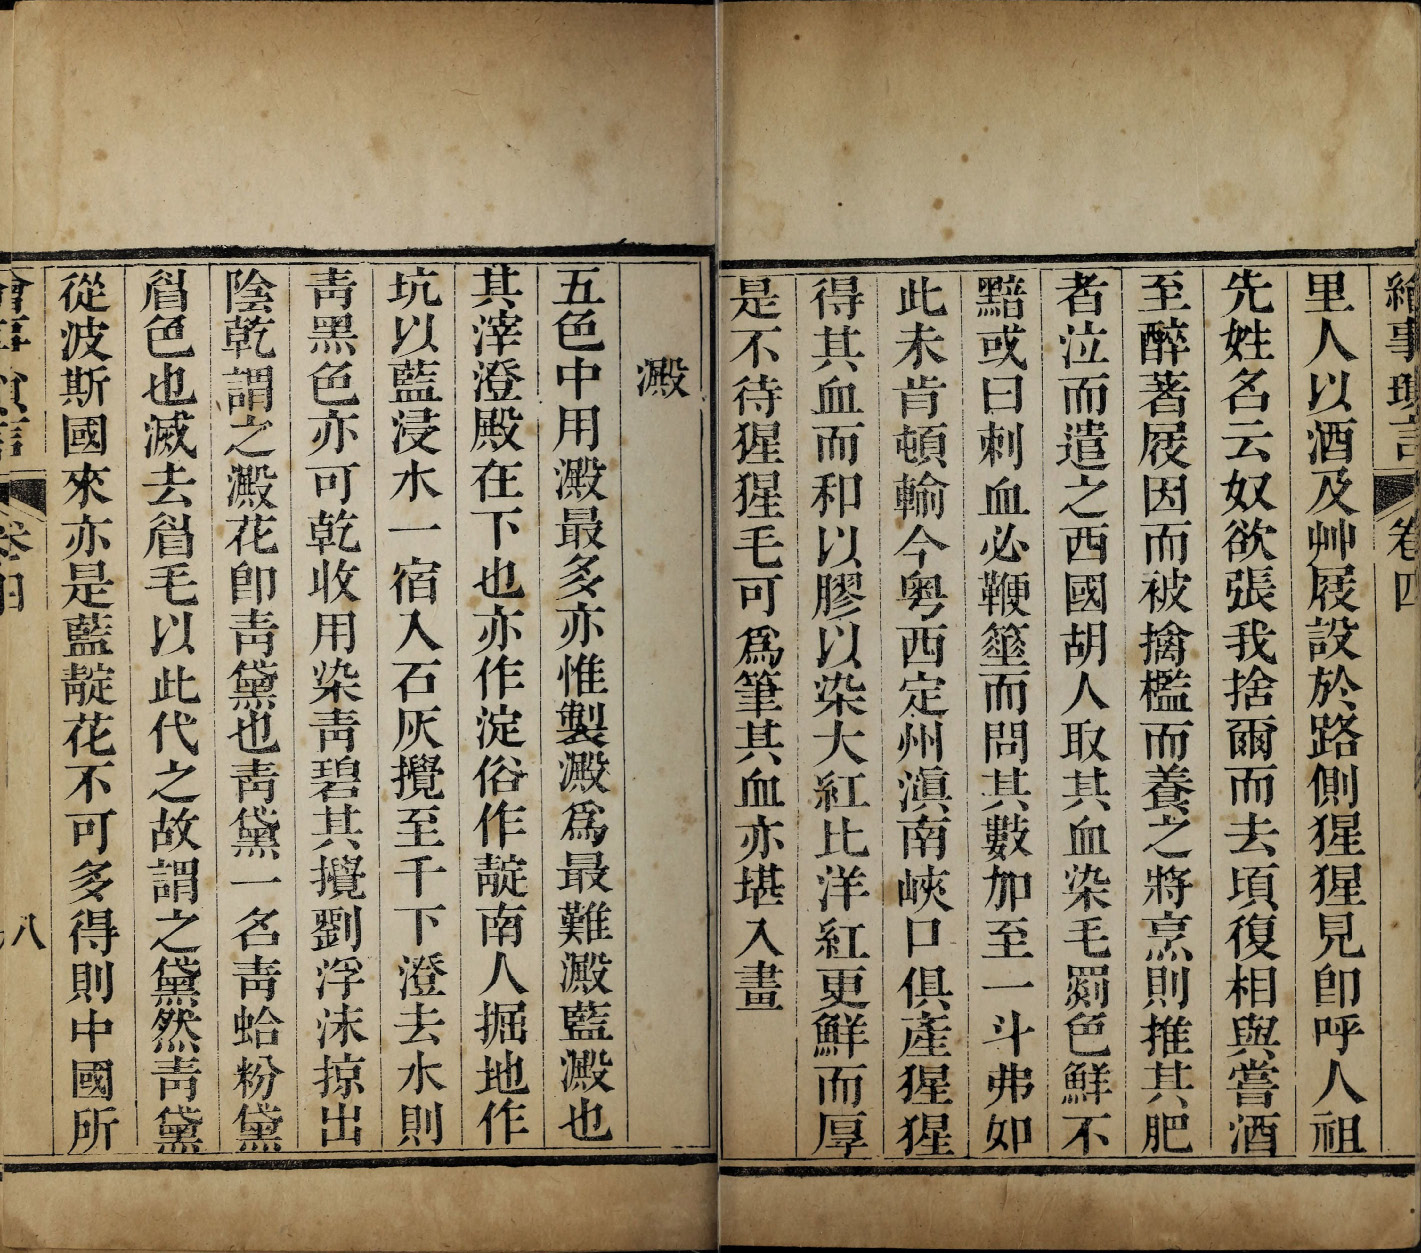 繪事瑣言 卷四
里人以酒及艸屐設於路側猩猩見卽呼人祖
先姓名云奴欲張我捨爾而去頃復相與嘗酒
至醉著屐因而被擒檻而養之將烹則推其肥
者泣而遣之西國胡人取其血染毛罽色鮮不
黯或曰刺血必鞭箠而問其數加至一斗弗如
此未肯頓輸今粵西定州滇南峽口俱產猩猩
得其血而和以膠以染大紅比洋紅更鮮而厚
是不待猩猩毛可爲筆其血亦堪入畫
澱
五色中用澱最多亦惟製澱爲最難澱藍澱也
其滓澄殿在下也亦作淀俗作靛南人掘地作
坑以藍浸水一宿入石灰攪至千下澄去水則
靑黑色亦可乾收用染靑碧其攪劉浮沫掠出
陰乾謂之澱花卽靑黛也靑黛一名靑蛤粉黛
眉色也滅去眉毛以此代之故謂之黛然靑黛
從波斯國來亦是藍靛花不可多得則中國所
繪事瑣言 卷四 八